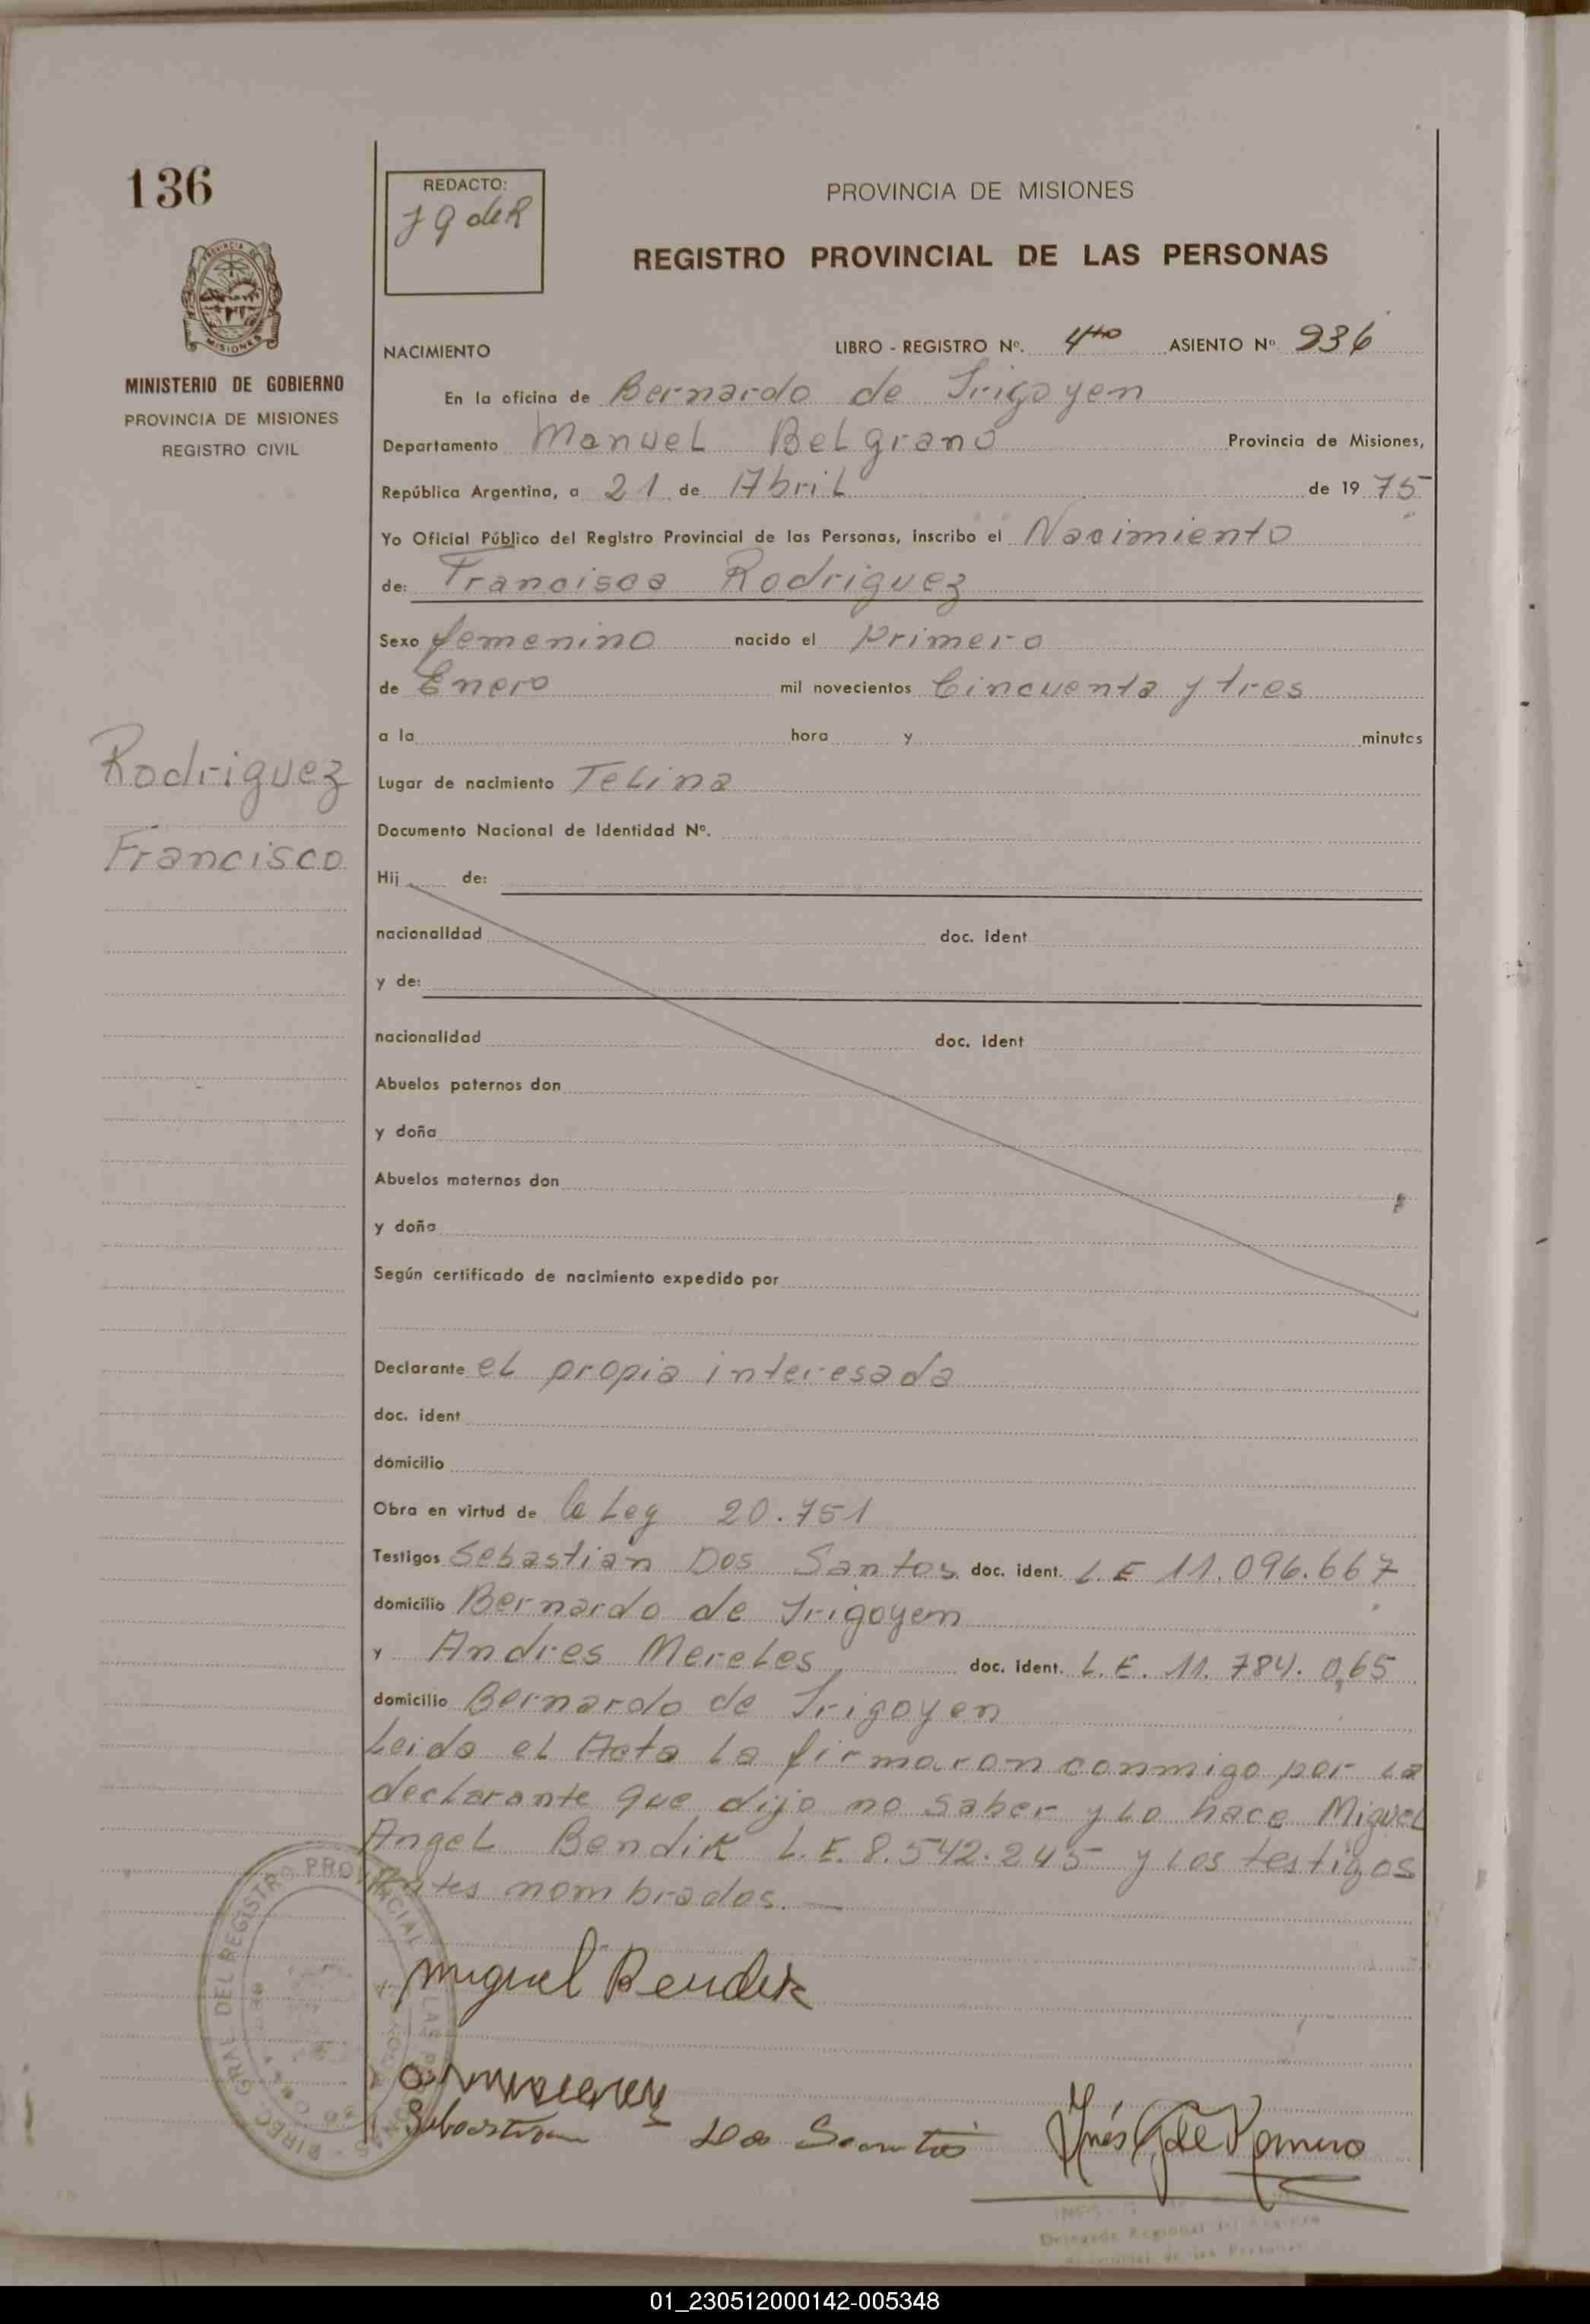 136
REDACTO:
J G de R
PROVINCIA DE MISIONES
REGISTRO PROVINCIAL DE LAS PERSONAS
PROVINCIA DE
MISIONES
MINISTERIO DE GOBIERNO
PROVINCIA DE MISIONES
REGISTRO CIVIL
NACIMIENTO LIBRO - REGISTRO Nº. 4to ASIENTO Nº 936
En la oficina de Bernardo de Irigoyen
Departamento Manuel Belgrano Provincia de Misiones,
República Argentina, a 21 de Abril de 19 75
Yo Oficial Público del Registro Provincial de las Personas, inscribo el Nacimiento
de: Francisca Rodriguez
Sexo femenino nacido el primero
de Enero mil novecientos Cincuenta y tres
a la hora y minutos
Rodriguez
Francisco
Lugar de nacimiento Telina
Documento Nacional de Identidad Nº.
Hij de:
nacionalidad doc. ident
y de:
nacionalidad doc. ident
Abuelos paternos don
y doña
Abuelos maternos don
y doña
Según certificado de nacimiento expedido por
Declarante el propia interesada
doc. ident
domicilio
Obra en virtud de la Ley 20.751
Testigos Sebastian Dos Santos doc. ident. L.E 11.096.667
domicilio Bernardo de Irigoyen
y Andres Mereles doc. ident. L.E. 11.784.065
domicilio Bernardo de Irigoyen
Leida el Acta la firmaron conmigo por la
declarante que dijo no saber y lo hace Miguel
Angel Bendik L.E. 8.542.245 y los testigos
antes nombrados.
Miguel Bendik
Sebastian Dos Santos
Inés G de Romero
DIREC. GRAL. DEL REGISTRO PROVINCIAL DE LAS PERSONAS
Delegada Regional del Registro
Provincial de las Personas
01_230512000142-005348